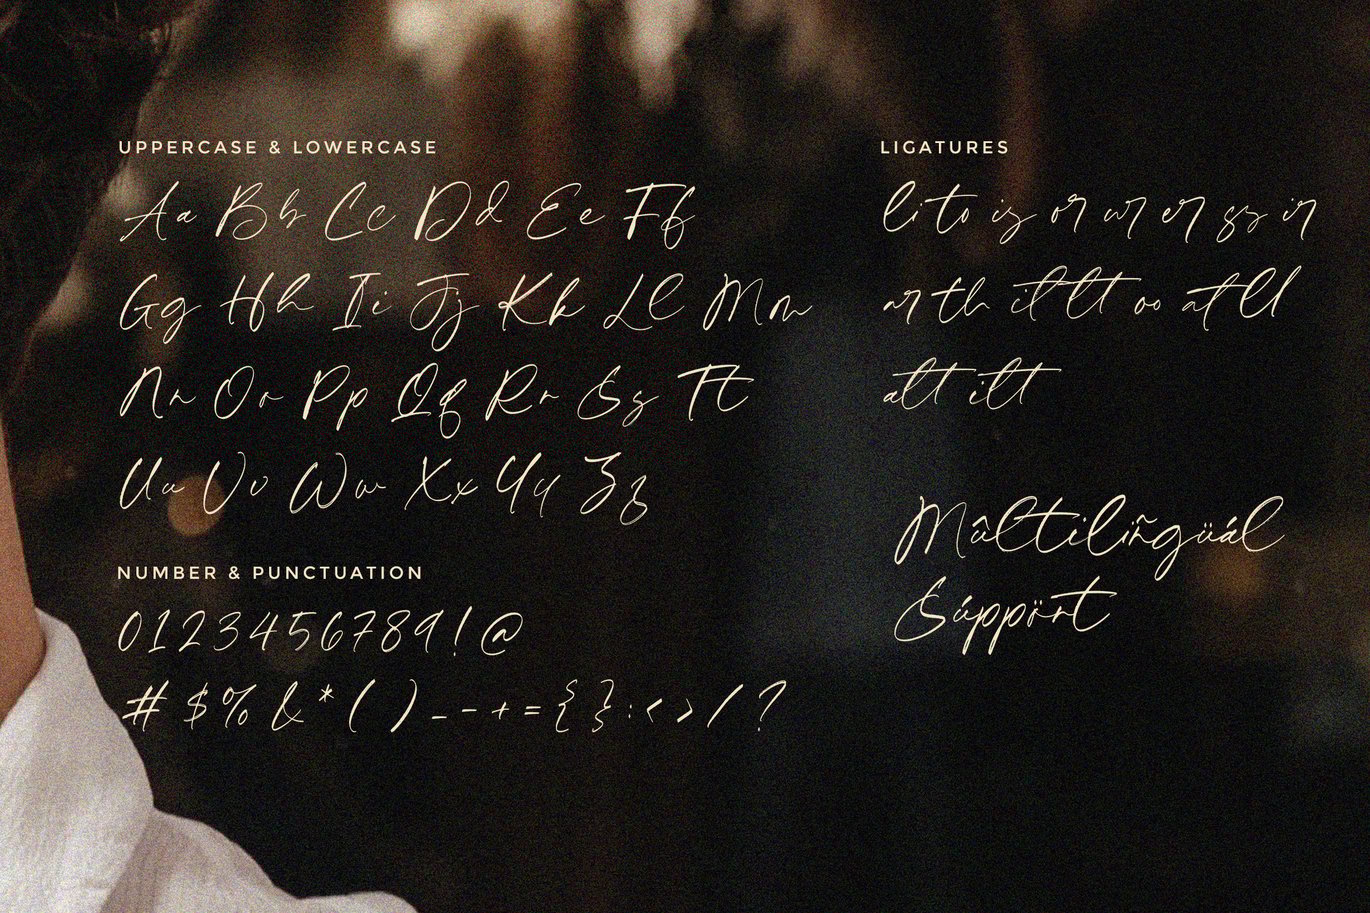 UPPERCASE & LOWERCASE
Aa Bb Cc Dd Ee Ff
Gg Hh Ii Jj Kk Ll Mm
Nn Oo Pp Qq Rr Ss Tt
Uu Vv Ww Xx Yy Zz
NUMBER & PUNCTUATION
0123456789!@
#$%&*()_-+={}:<>/?
LIGATURES
li to is or ur er ss ir
ar th it lt oo at ll
att itt
Mûltiliñgüál
Súppört